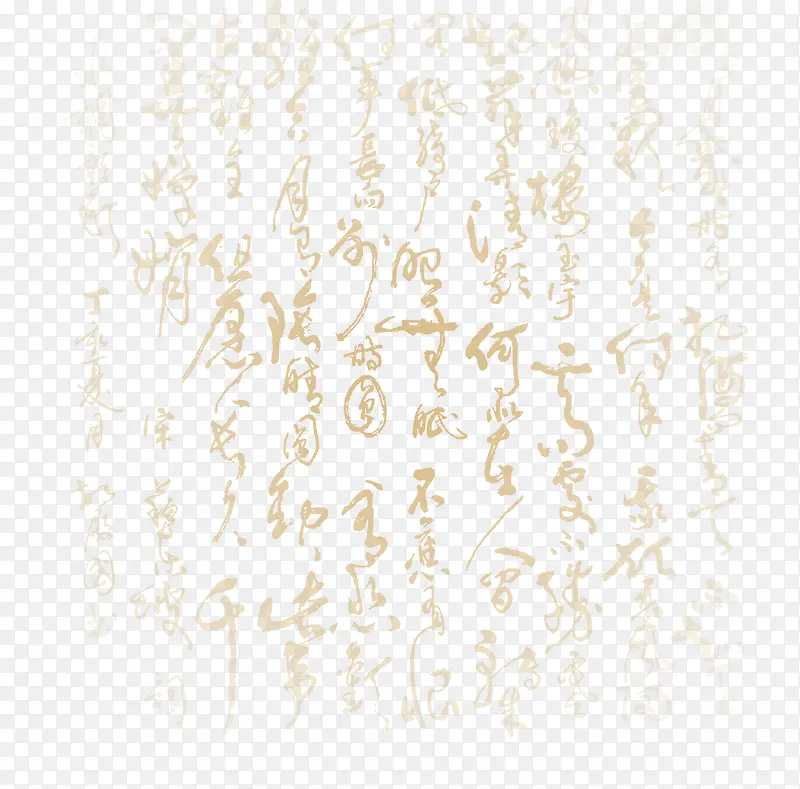 月幾時有把酒問青天不
上宮闕今夕是何年我欲乘風歸
恐瓊樓玉宇高處不勝寒
起舞弄清影何似在人間轉朱
閣低綺戶照無眠不應有恨
何事長向別時圓人有悲歡
離合月有陰晴圓缺此事
古難全但願人長久千
里共嬋娟宋蘇東坡詞
調歌頭丁亥夏月國書